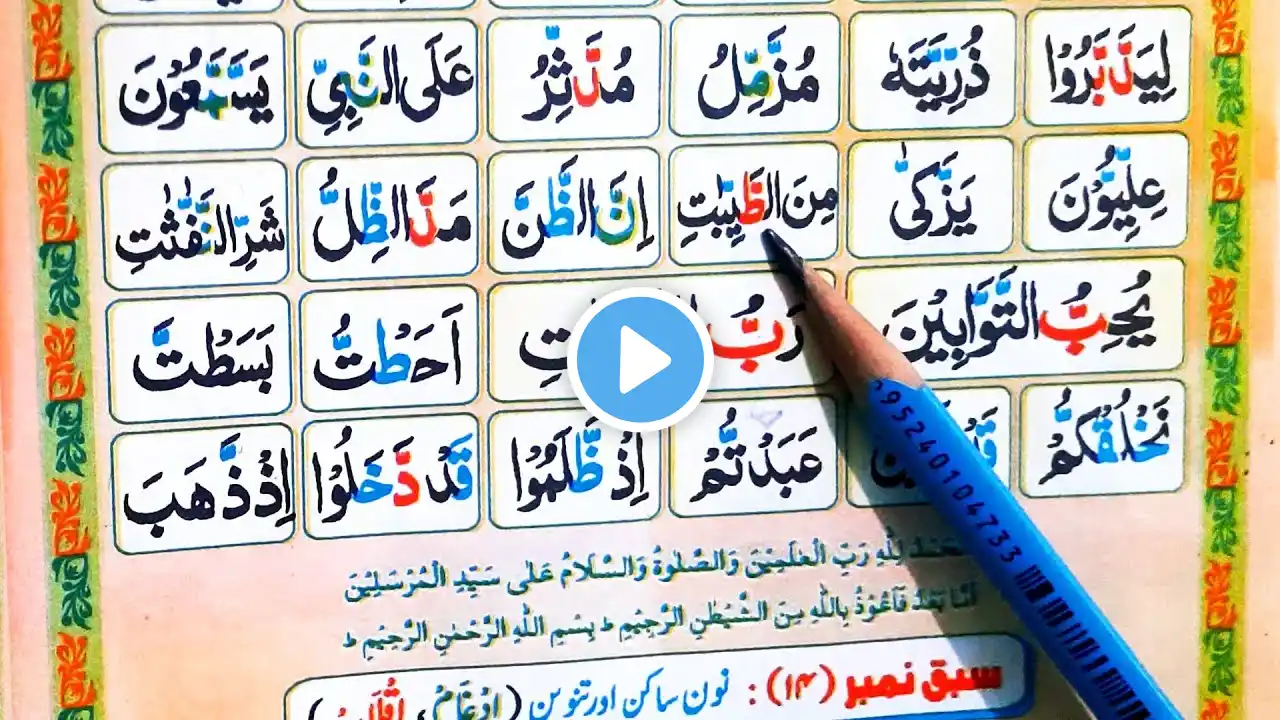 لِيَدَّبَّرُوْا ذُرِّيَّتَهٗ مُزَّمِّلُ مُدَّثِّرُ عَلَى النَّبِيِّ يَسَّمَّعُوْنَ
عِلِّيُّوْنَ يَزَّكّٰى مِنَ الطَّيِّبٰتِ اِنَّ الظَّنَّ مَدَّ الظِّلَّ شَرِّ النَّفّٰثٰتِ
يُحِبُّ التَّوَّابِيْنَ رَبُّ اَحَطْتُّ بَسَطْتَّ
نَخْلُقْكُّمْ عَبَدْتُّمْ اِذْ ظَّلَمُوْا قَدْ دَّخَلُوْا اِذْ ذَّهَبَ
لِلّٰهِ رَبِّ الْعٰلَمِيْنَ وَالصَّلٰوةُ وَالسَّلَامُ عَلٰى سَيِّدِ الْمُرْسَلِيْنَ
اَمَّا بَعْدُ فَاَعُوْذُ بِاللّٰهِ مِنَ الشَّيْطٰنِ الرَّجِيْمِ ط بِسْمِ اللّٰهِ الرَّحْمٰنِ الرَّحِيْمِ ط
سبق نمبر (۱۴) : نون ساکن اور تنوین (اِدْغَامْ، اِقْلَابْ)
9524010 4733